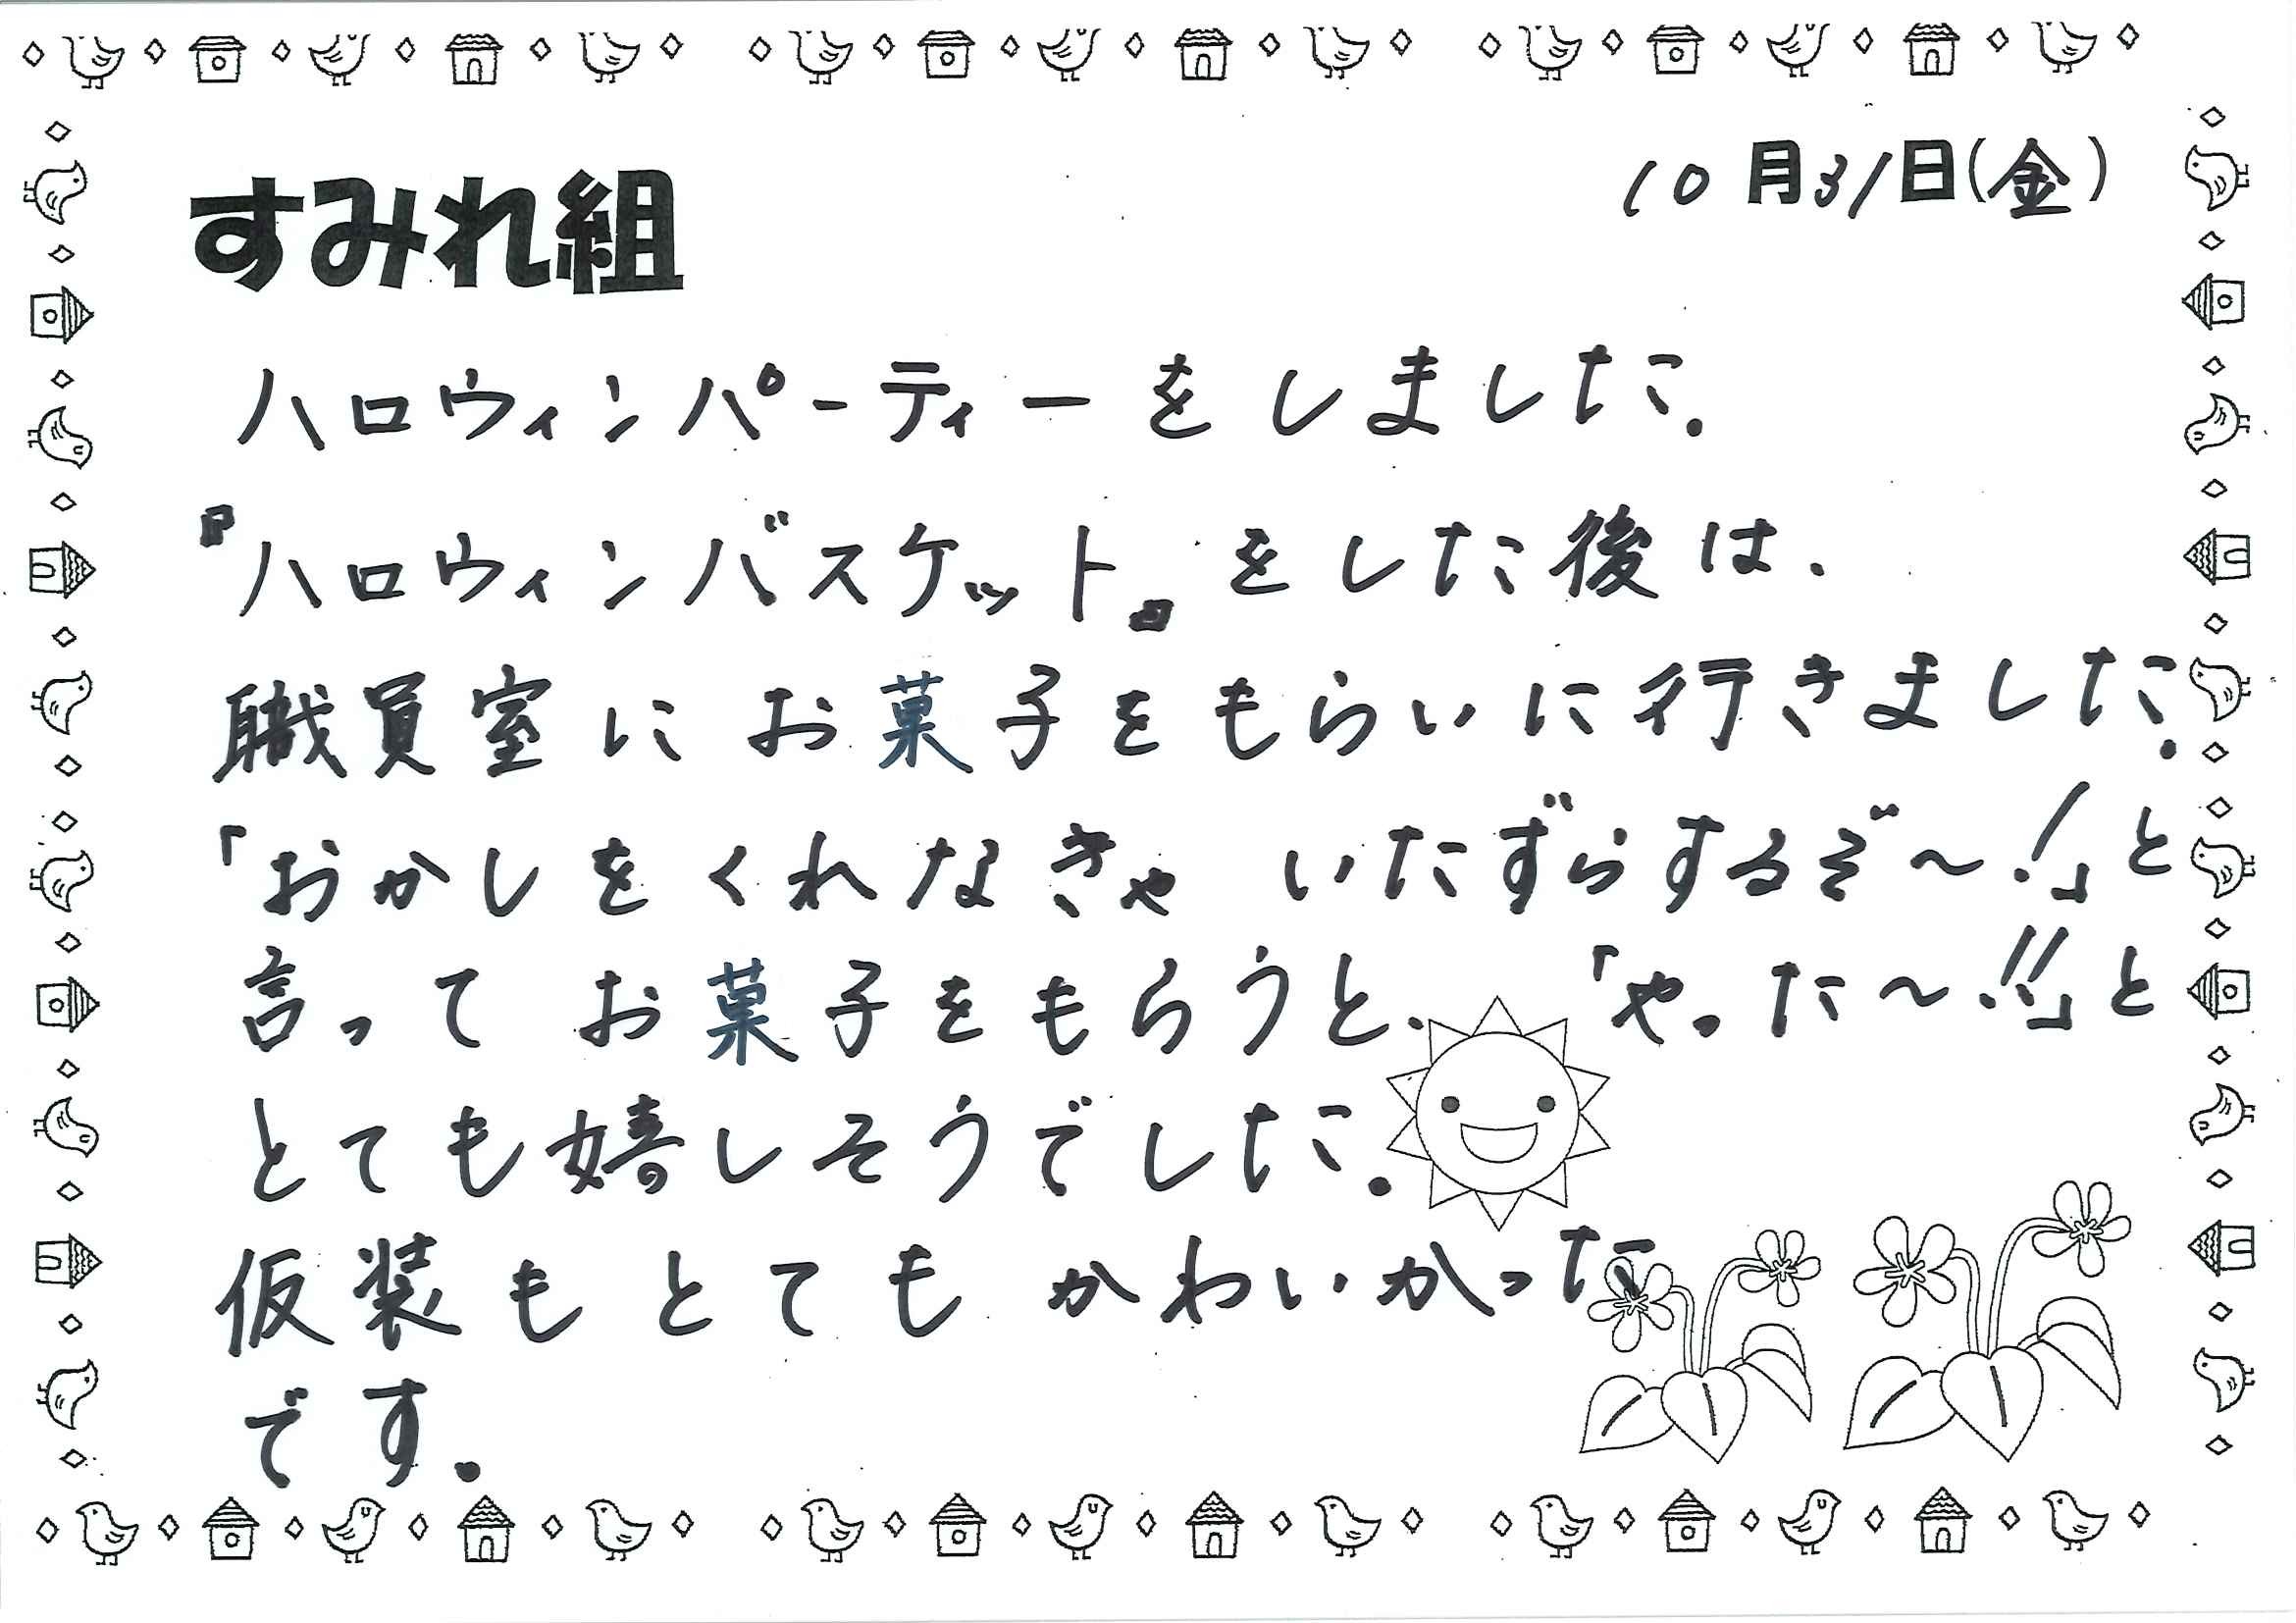 10月31日(金)
すみれ組
ハロウィンパーティーをしました.
『ハロウィンバスケット』をした後は.
職員室にお菓子をもらいに行きました.
「おかしをくれなきゃ いたずらするぞ〜!」と
言ってお菓子をもらうと.「やった〜!!」と
とても嬉しそうでした.
仮装もとてもかわいかった
です.